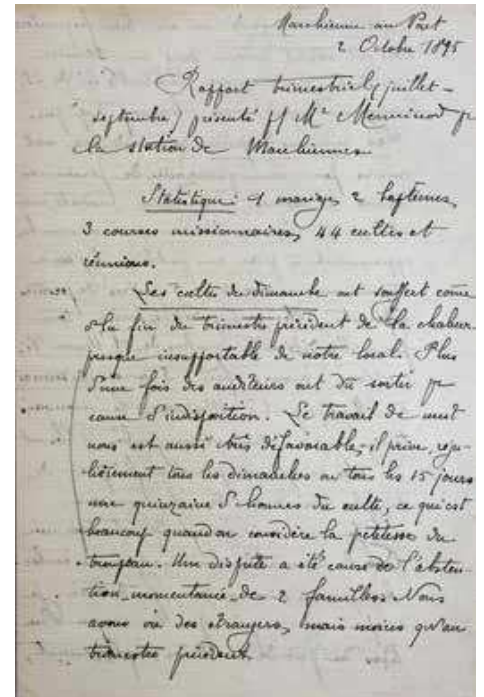 Marchienne au Pont
2 Octobre 1895
Rapport trimestriel (juillet-
septembre) présenté pr Mr Menninod pr
la station de Marchiennes.
Statistique: 1 mariage, 2 baptêmes,
3 courses missionnaires, 44 cultes et
réunions.
Les cultes du dimanche ont souffert come
à la fin du trimestre précédent de la chaleur
presque insupportable de notre local. Plus
d'une fois des auditeurs ont dû sortir pr
cause d'indisposition. Le travail de nuit
nous est aussi très défavorable, il prive, régu-
lièrement tous les dimanches ou tous les 15 jours
une quinzaine d'hommes du culte, ce qui est
beaucoup quand on considère la petitesse du
troupeau. Une dispute a été cause de l'absten-
tion momentanée de 2 familles. Nous
avons vu des étrangers, mais moins qu'au
trimestre précédent.